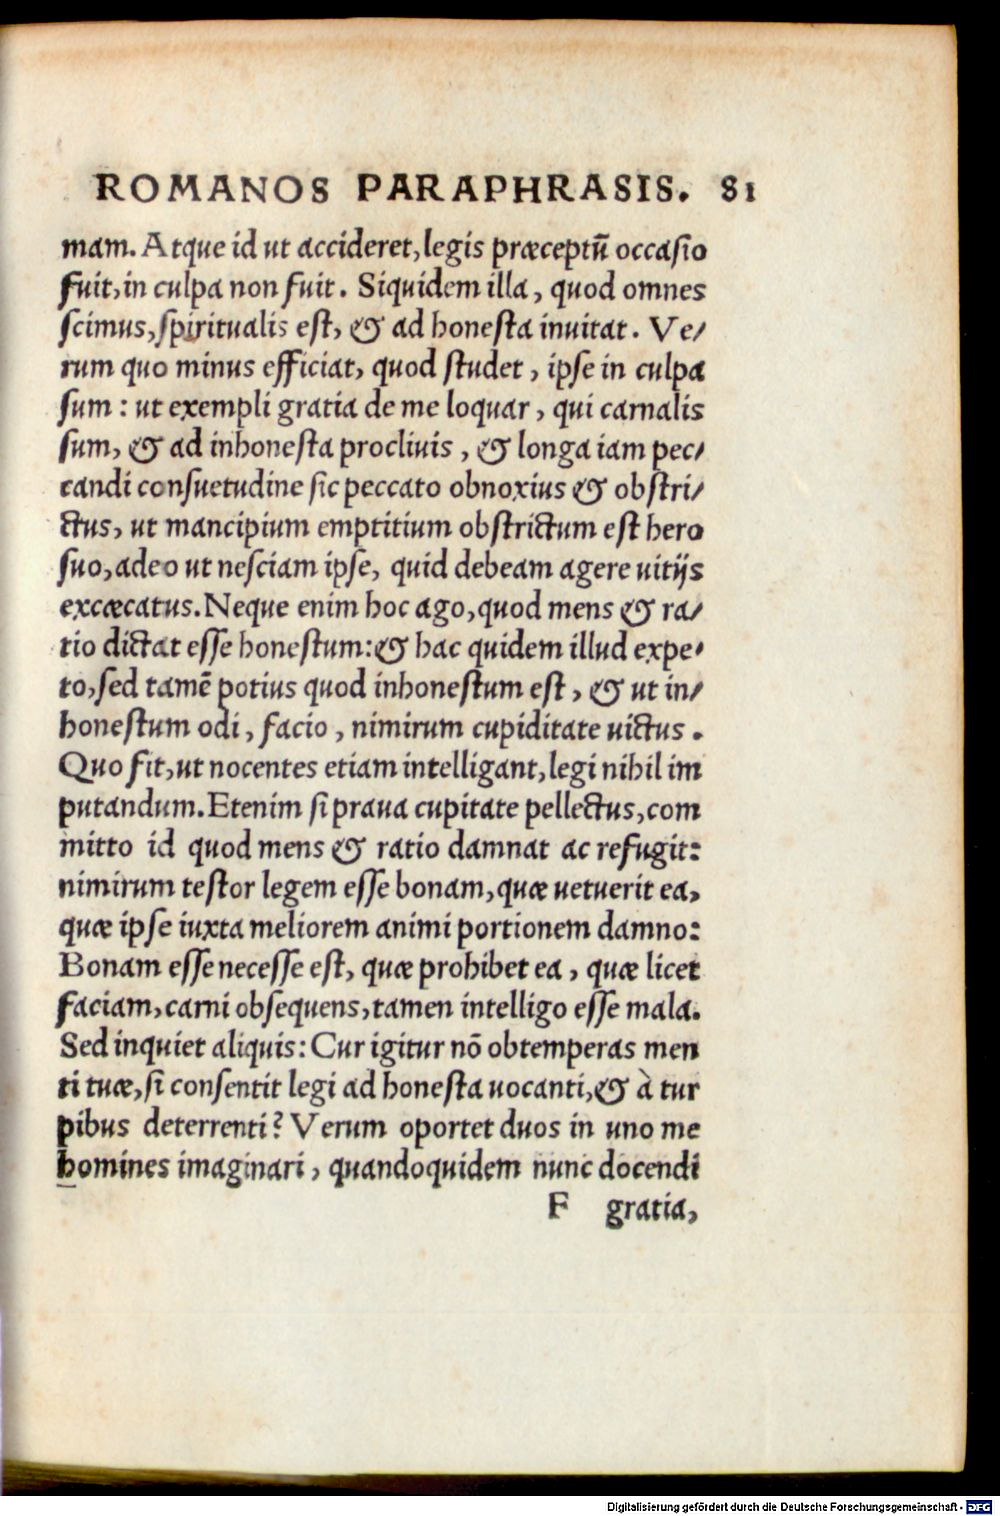 ROMANOS PARAPHRASIS. 81
mam. Atque id ut accideret, legis præceptũ occasio
fuit, in culpa non fuit. Siquidem illa, quod omnes
scimus, spiritualis est, & ad honesta inuitat. Ve/
rum quo minus efficiat, quod studet, ipse in culpa
sum: ut exempli gratia de me loquar, qui carnalis
sum, & ad inhonesta procliuis, & longa iam pec/
candi consuetudine sic peccato obnoxius & obstri/
ctus, ut mancipium emptitium obstrictum est hero
suo, adeo ut nesciam ipse, quid debeam agere uitijs
excæcatus. Neque enim hoc ago, quod mens & ra/
tio dictat esse honestum: & hac quidem illud expe/
to, sed tamẽ potius quod inhonestum est, & ut in/
honestum odi, facio, nimirum cupiditate uictus.
Quo fit, ut nocentes etiam intelligant, legi nihil im
putandum. Etenim si praua cupitate pellectus, com
mitto id quod mens & ratio damnat ac refugit:
nimirum testor legem esse bonam, quæ uetuerit ea,
quæ ipse iuxta meliorem animi portionem damno:
Bonam esse necesse est, quæ prohibet ea, quæ licet
faciam, carni obsequens, tamen intelligo esse mala.
Sed inquiet aliquis: Cur igitur nõ obtemperas men
ti tuæ, si consentit legi ad honesta uocanti, & à tur
pibus deterrenti? Verum oportet duos in uno me
homines imaginari, quandoquidem nunc docendi
F gratia,
Digitalisierung gefördert durch die Deutsche Forschungsgemeinschaft - DFG